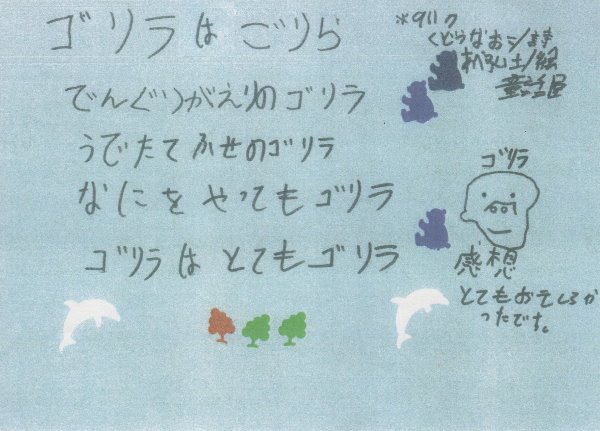 ゴリラは ごりら
でんぐりがえりのゴリラ
うでたてふせのゴリラ
なにを やっても ゴリラ
ゴリラは とてもゴリラ
くどうなおこ/詩
/絵
童話屋
ゴリラ
感想
とてもおもしろか
ったです。